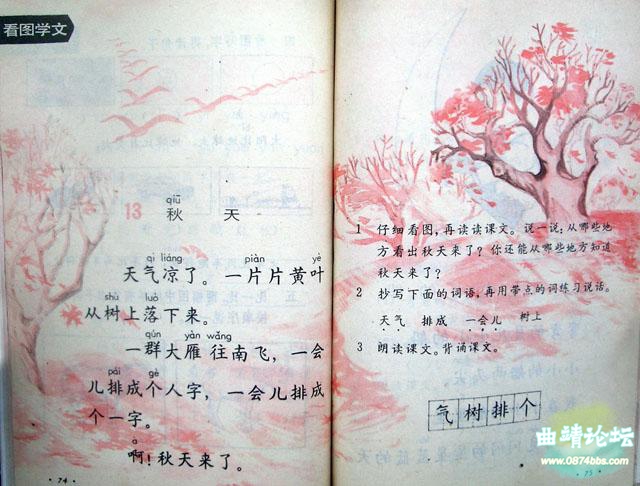 看图学文
qiū
13 秋 天
qì liáng piàn yè
天气凉了。一片片黄叶
shù luò
从树上落下来。
qún yàn wǎng
一群大雁往南飞，一会
pái gè
儿排成个人字，一会儿排成
个一字。
a
啊！秋天来了。
74
1 仔细看图，再读读课文。说一说：从哪些地
方看出秋天来了？你还能从哪些地方知道
秋天来了？
2 抄写下面的词语，再用带点的词练习说话。
天气 排成 一会儿 树上
3 朗读课文。背诵课文。
气树排个
75
曲靖论坛
www.0874bbs.com